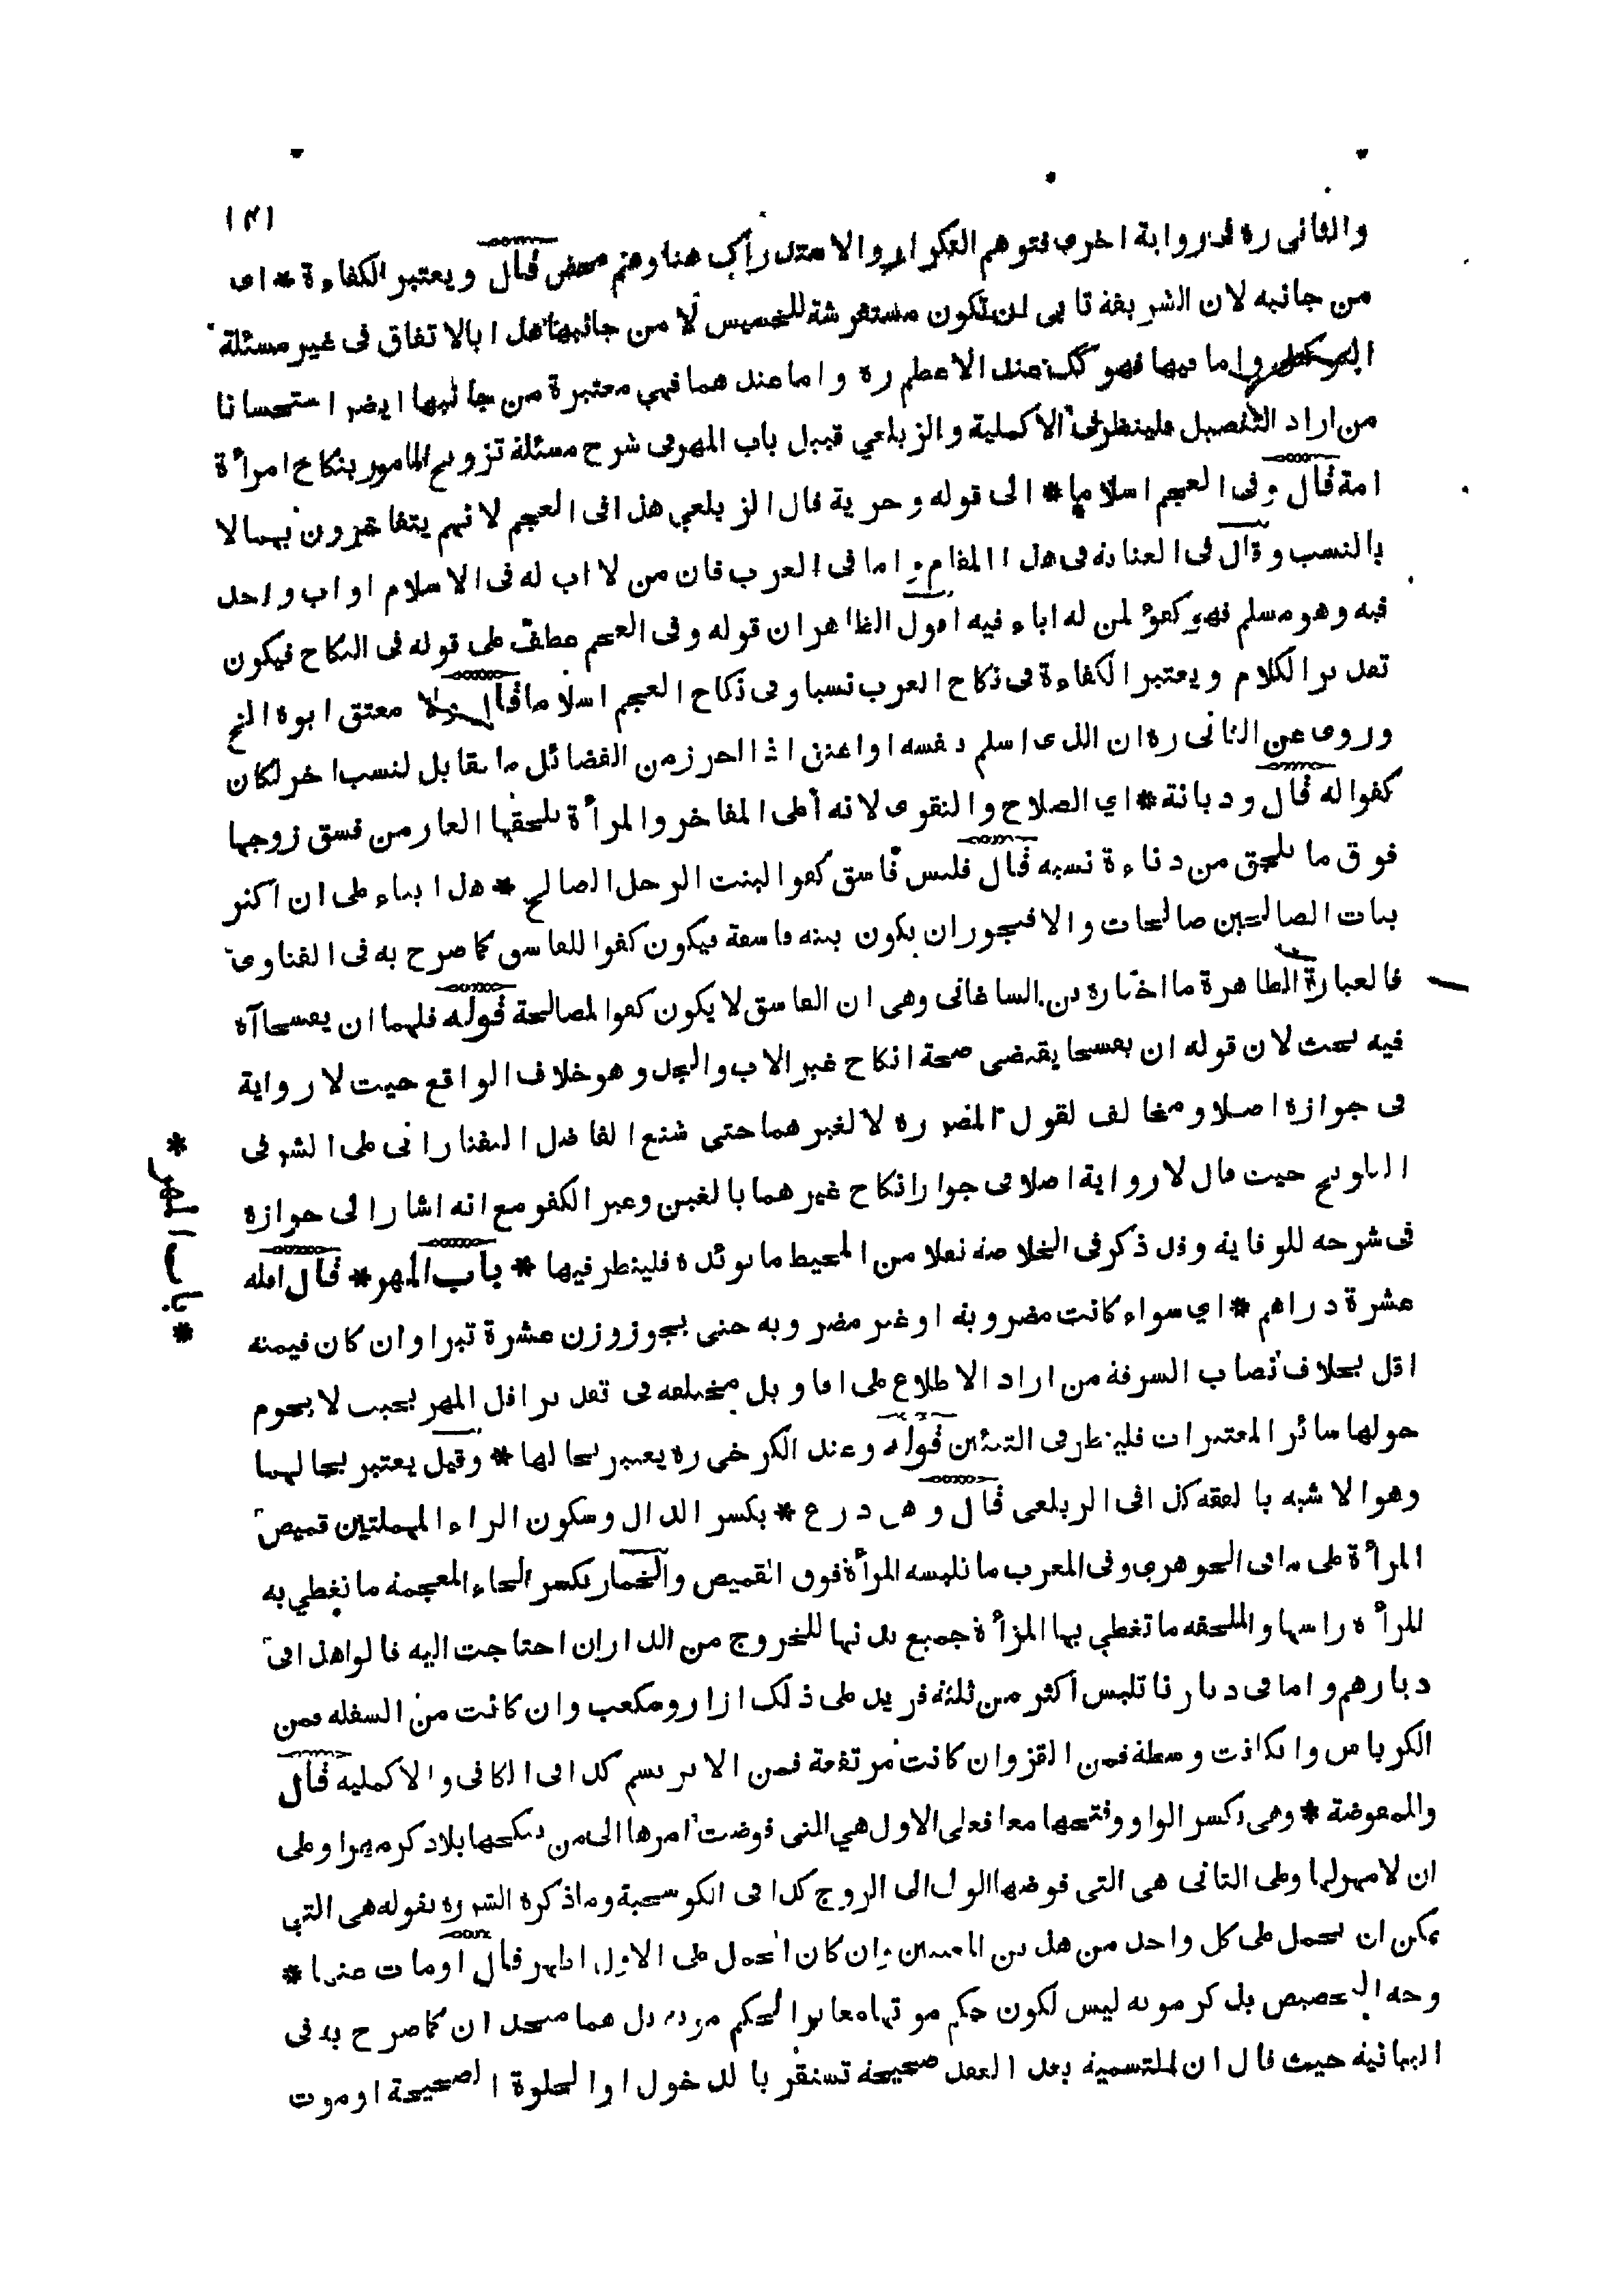 (١٤١)
والثانى ره فى رواية اخرى فتوهم التكرار والاستدراك هنا وهم محض قال ويعتبر الكفاءة * اى
من جانبه لان الشريفة تابى ان تكون مستفرشة للخسيس لا من جانبها هذا بالاتفاق فى غير مسئلة
التوكيل واما فيها فهو كك عند الاعظم ره واما عندهما فهي معتبرة من جانبها ايضا استحسانا
من اراد التفصيل فلينظر فى الاكملية والزيلعي قبيل باب المهر فى شرح مسئلة تزويج المامور بنكاح امرأة
امة قال وفى العجم اسلاما * الى قوله وحرية قال الزيلعي هذا فى العجم لانهم يتفاخرون بهما لا
بالنسب وقال فى العناية فى هذا المقام واما فى العرب فان من لا اب له فى الاسلام او اب واحد
فيه وهو مسلم فهو كفؤ لمن له اباء فيه اقول الظاهر ان قوله وفى العجم عطف على قوله فى النكاح فيكون
تقدير الكلام ويعتبر الكفاءة فى نكاح العرب نسبا وفى نكاح العجم اسلاما قال ولا معتق ابوه الخ
وروى عن الثانى ره ان الذى اسلم بنفسه او اعتق اذا احرز من الفضائل ما يقابل لنسب اخر لكان
كفوا له قال وديانة * اي الصلاح والتقوى لانه أعلى المفاخر والمرأة يلحقها العار من فسق زوجها
فوق ما يلحق من دناءة نسبه قال فليس فاسق كفوا لبنت الرجل الصالح * هذا بناء على ان اكثر
بنات الصالحين صالحات والا فيجوز ان يكون بنته فاسقة فيكون كفوا للفاسق كما صرح به فى الفتاوى
فالعبارة الظاهرة ما اختاره بن الساعاتى وهى ان الفاسق لا يكون كفوا لصالحة قوله فلهما ان يفسخا آه
فيه بحث لان قوله ان يفسخا يقتضى صحة انكاح غير الاب والجد وهو خلاف الواقع حيث لا رواية
فى جوازه اصلا ومخالف لقول المصر ره لا لغيرهما حتى شنع الفاضل التفتازانى على الشر فى
التلويح حيث قال لا رواية اصلا فى جواز انكاح غيرهما بالغبن وغير الكفو مع انه اشار الى جوازه
فى شرحه للوقاية وقد ذكر فى الخلاصة نقلا من المحيط ما يؤيده فلينظر فيها * باب المهر * قال اقله
عشرة دراهم * اي سواء كانت مضروبة او غير مضروبة حتى يجوز وزن عشرة تبرا وان كان قيمته
اقل بخلاف نصاب السرقة من اراد الاطلاع على اقاويل مختلفة فى تقدير اقل المهر بحيث لا يحوم
حولها سائر المعتبرات فلينظر فى التبيين قوله وعند الكرخى ره يعتبر بحالها * وقيل يعتبر بحالهما
وهو الاشبه بالفقه كذا فى الزيلعى قال وهى درع * بكسر الدال وسكون الراء المهملتين قميص
المرأة على ما فى الجوهرى وفى المغرب ما تلبسه المرأة فوق القميص والخمار بكسر الخاء المعجمة ما تغطي به
المرأة راسها والملحفة ما تغطي بها المرأة جميع بدنها للخروج من الدار ان احتاجت اليه قالوا هذا فى
ديارهم واما فى ديارنا تلبس أكثر من ثلثة فريد على ذلك ازار ومكعب وان كانت من السفلة فمن
الكرباس وان كانت وسطة فمن القز وان كانت مرتفعة فمن الابريسم كذا فى الكافى والاكملية قال
والمفوضة * وهى بكسر الواو وفتحها معا فعلى الاول هي التى فوضت امرها الى من ينكحها بلا ذكر مهر او على
ان لا مهر لها وعلى الثانى هى التى فوضها الولى الى الزوج كذا فى الكوسجية وما ذكره الشر ره بقوله هى التى
يمكن ان يحمل على كل واحد من هذين المعنيين وان كان الحمل على الاول اظهر قال او مات عنها *
وجه التخصيص بذكر موته ليس لكون حكم موتها مغايرا لحكم موته بل هما متحدان كما صرح به فى
البهائية حيث قال ان المتسمية بعد العقد صحيحة تستقر بالدخول او الخلوة الصحيحة او موت
* باب المهر *